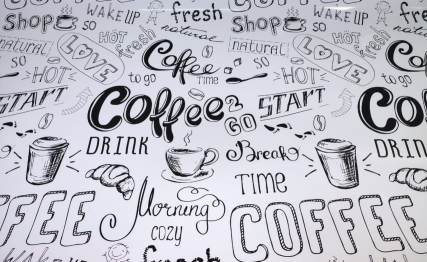 COFFEE
Shop SO WAKE UP fresh
natural
HOT
fresh
natural LOVE
SO
HOT
Coffee TIME
to go
START
Coffee 2 GO
DRINK
Break
TIME
Morning
COZY
COFFEE
Wake up
fresh
Shop SO WAKE UP fre
natural
HOT
fresh
natural LOVE
SO
HOT
Coff
to go
START
Co
DRIN
FFEE